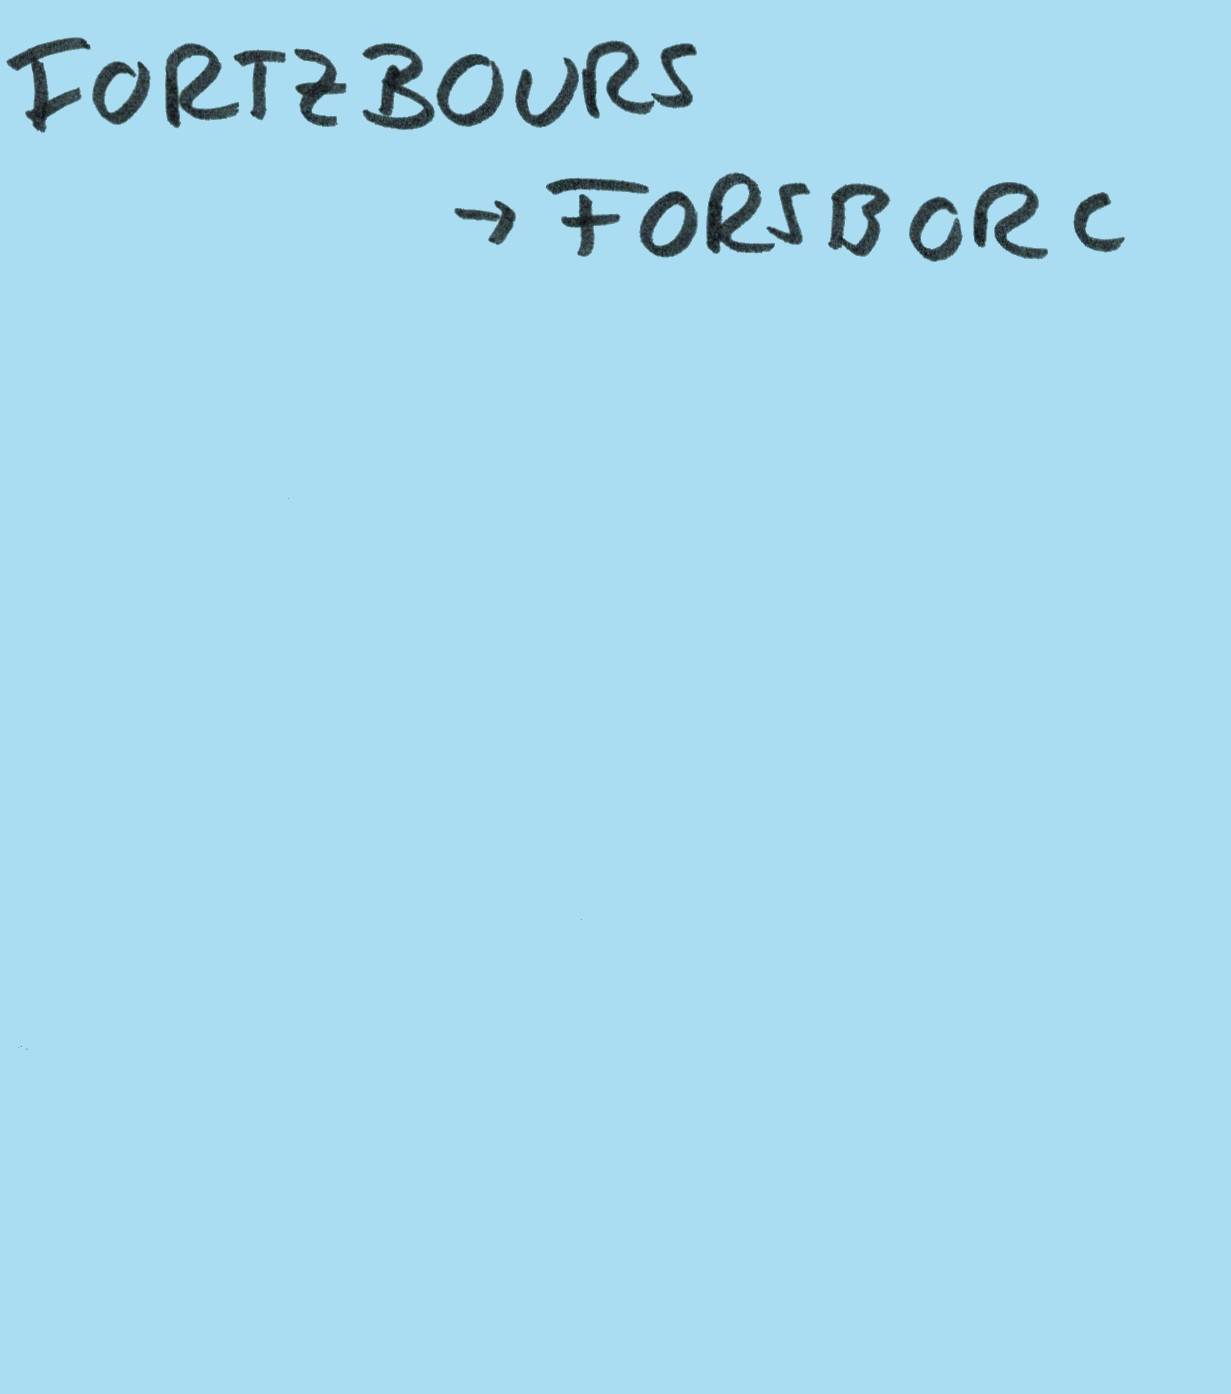 FORTZBOURS
→ FORSBORC